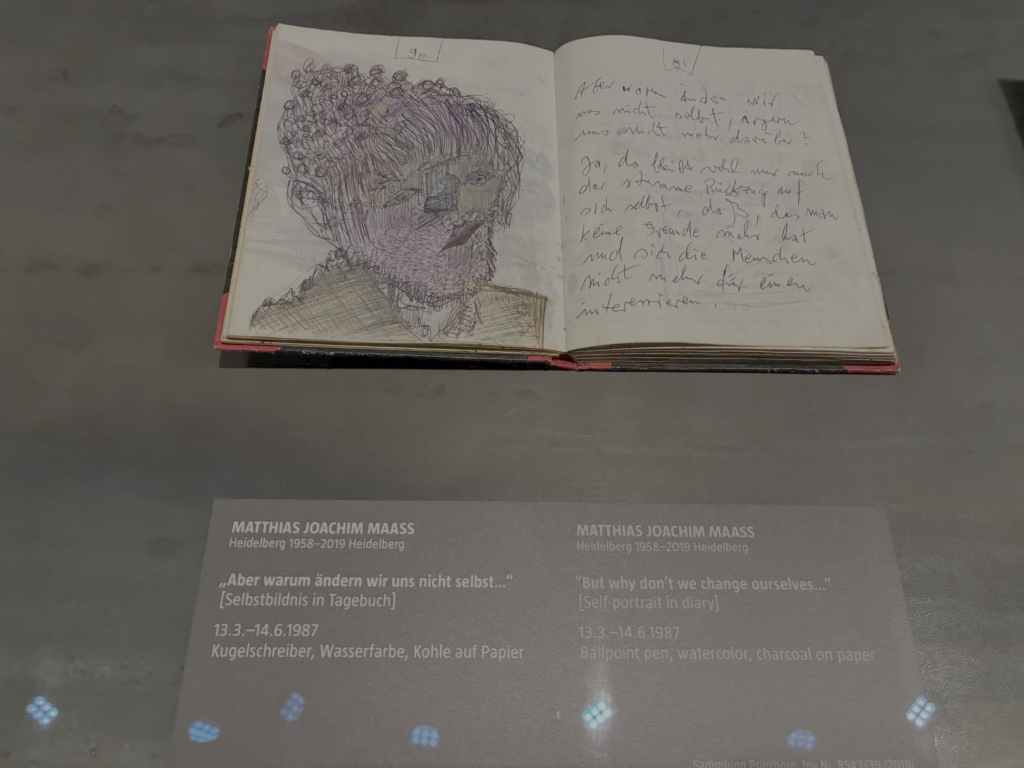 90
91
Aber warum ändern wir
uns nicht selbst, ärgern
uns nicht mehr darüber?
Ja, da bleibt wohl nur noch
der stumme Rückzug auf
sich selbst, da das man
keine Freunde mehr hat
und sich die Menschen
nicht mehr für einen
interessieren.
MATTHIAS JOACHIM MAASS
Heidelberg 1958–2019 Heidelberg
„Aber warum ändern wir uns nicht selbst...“
[Selbstbildnis in Tagebuch]
13.3.–14.6.1987
Kugelschreiber, Wasserfarbe, Kohle auf Papier
MATTHIAS JOACHIM MAASS
Heidelberg 1958–2019 Heidelberg
“But why don’t we change ourselves...”
[Self-portrait in diary]
13.3.–14.6.1987
Ballpoint pen, watercolor, charcoal on paper
Sammlung Prinzhorn, Inv.Nr.